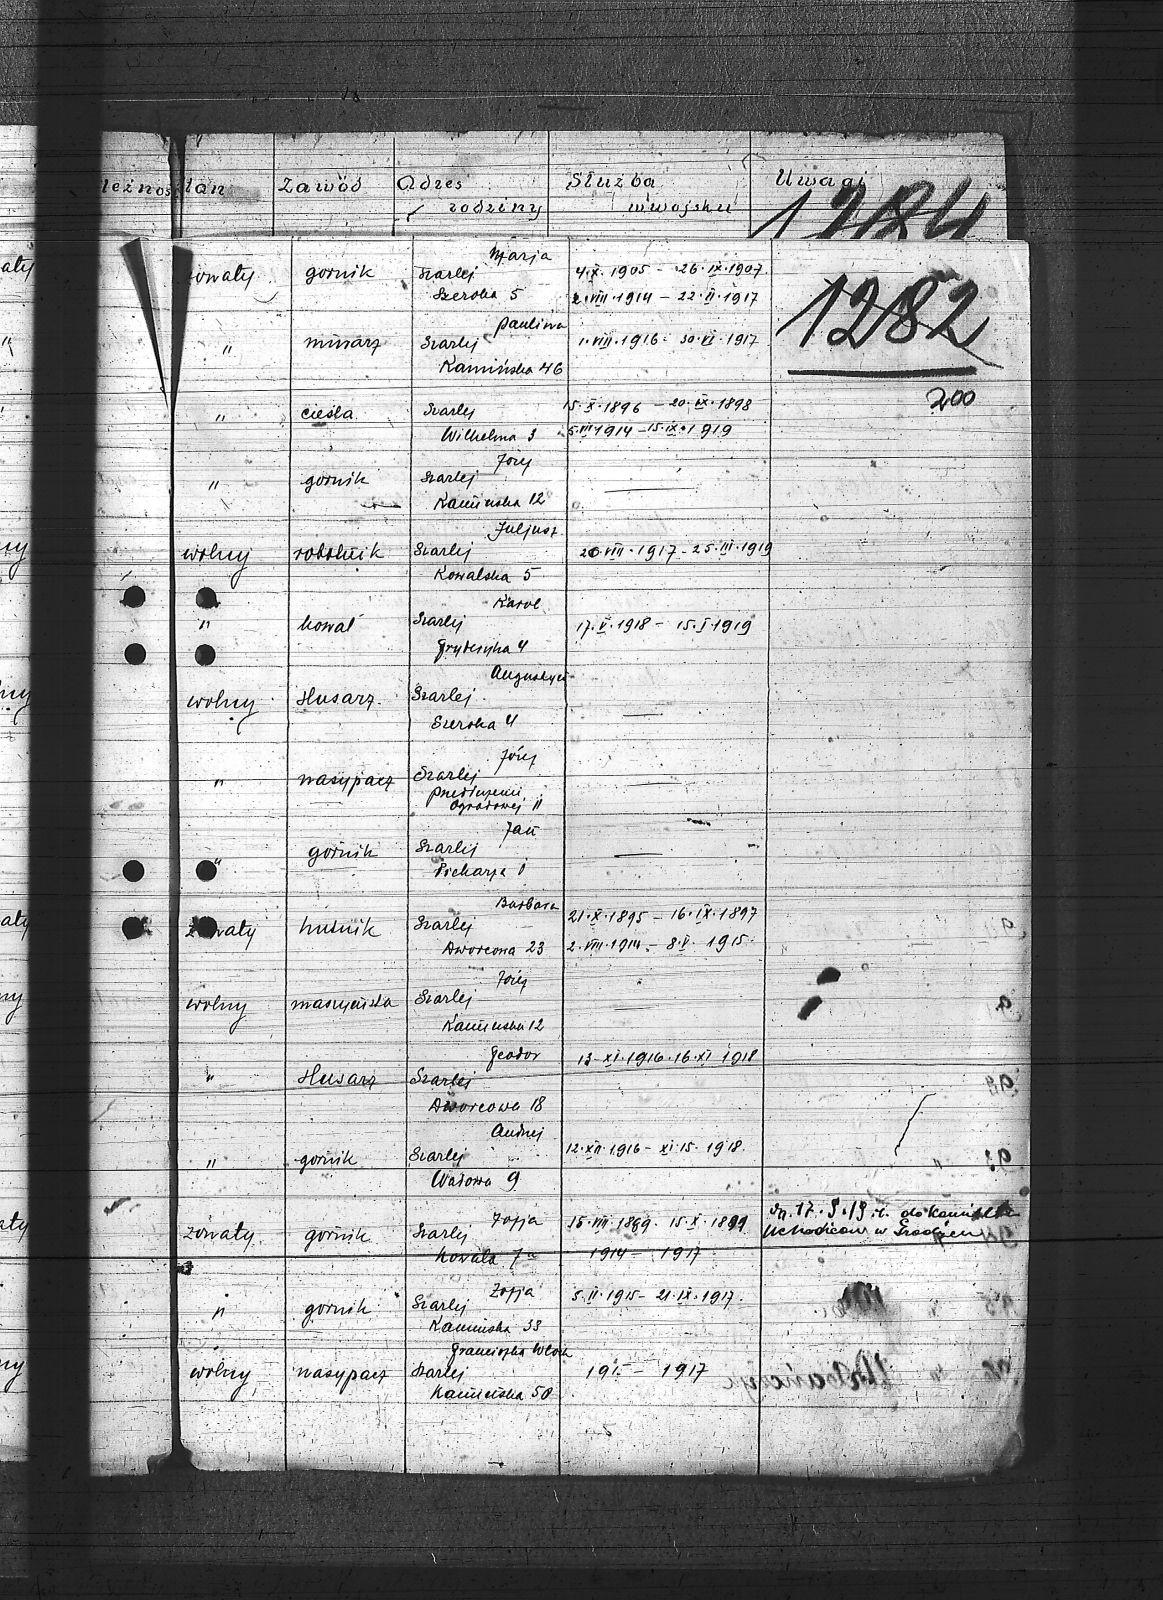 leżność stan Zawód Adres rodziny Służba w wojsku Uwagi
1284
1282
200
Marja
żonaty górnik Szarlej 4.X.1905 - 26.IX.1907
Szeroka 5 2.VIII.1914 - 22.II.1917
Paulina
" murarz Szarlej 1.VIII.1916 - 30.VI.1917
Kamińska 46
" cieśla Szarlej 15.X.1896 - 20.IX.1898
Wilhelma 3 5.III.1914 - 15.IX.1919
Józef
" górnik Szarlej —
Kamińska 12
Juljusz
wolny robotnik Szarlej 20.VII.1917 - 25.III.1919
Kowalska 5
Karol
" kowal Szarlej 17.V.1918 - 15.I.1919
4
Augustyn
wolny ślusarz Szarlej
Szeroka 4 —
Józef
" nasypacz Szarlej —
Ogrodowej 11
Jan
" górnik Szarlej —
Piekarska 1
Barbara
żonaty hutnik Szarlej 21.X.1895 - 16.IX.1897
Dworcowa 23 2.VIII.1914 - 8.V.1915
Józef
wolny maszynista Szarlej —
Kamińska 12
Teodor 13.XI.1916 - 16.XI 1918
" ślusarz Szarlej
Dworcowa 18
Andrzej
" górnik Szarlej 12.XII.1916 - XI.15.1918.
Wałowa 9
Zofja
żonaty górnik Szarlej 15.VIII.1889 - 15.X.1891
7 1914 - 1917
Zofja
" górnik Szarlej 5.II.1915 - 21.IX.1917.
Kamińska 33
Franciszka
wolny nasypacz Szarlej 1917
Kamińska 50